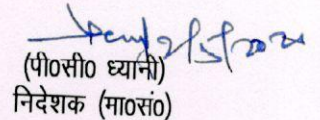 (पी०सी० ध्यानी)
निदेशक (मा०सं०)